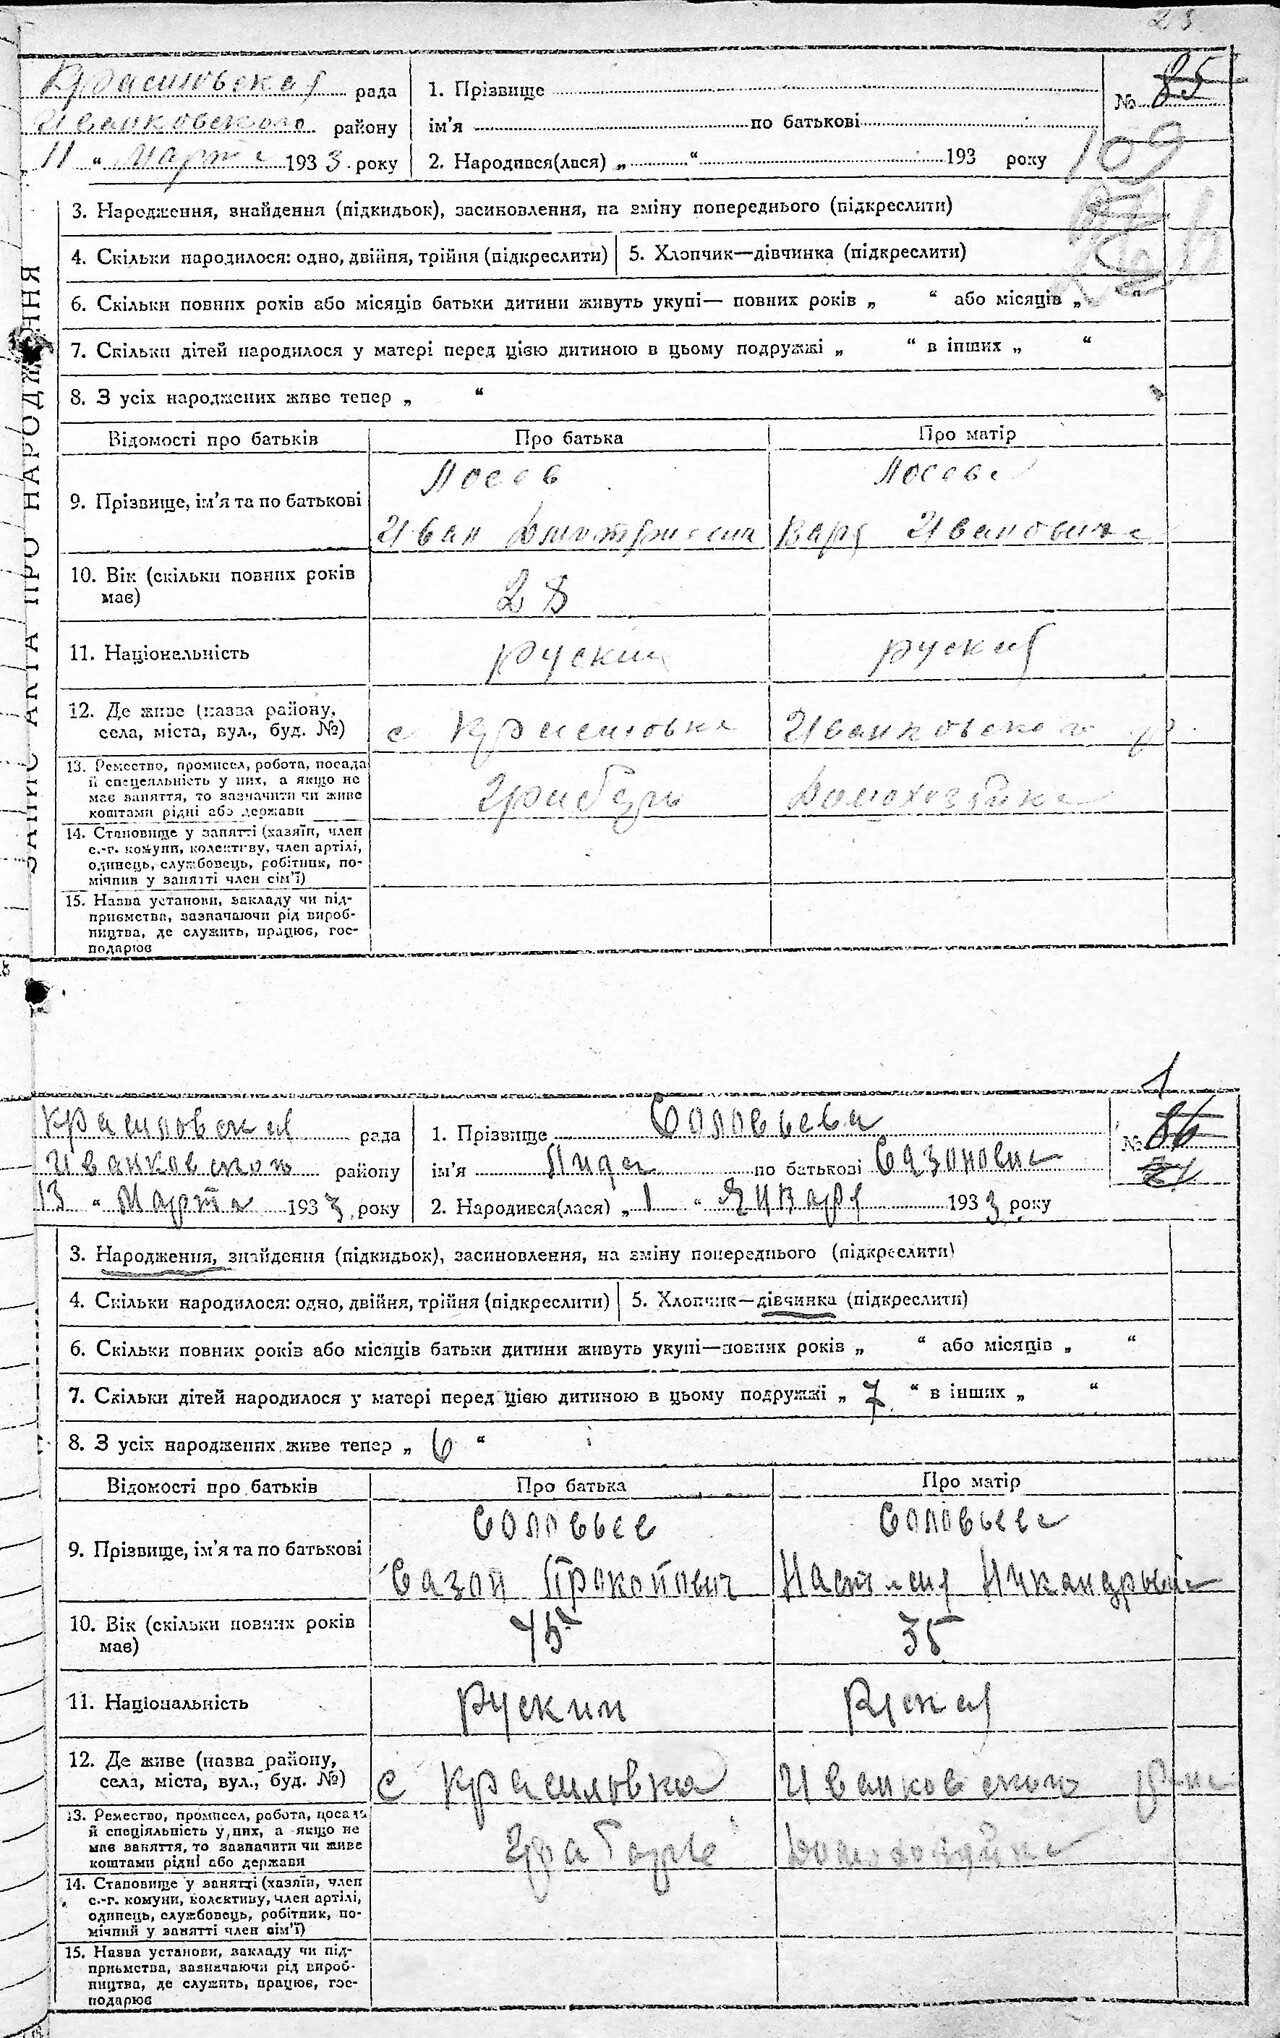 23
Красиловская рада
Иванковского району
11 " Марта 1933 року
1. Прізвище
ім'я по батькові
2. Народився(лася) „ “ 193 року
№ 85
109
ЗАПИС АКТА ПРО НАРОДЖЕННЯ
3. Народження, знайдення (підкидьок), засиновлення, на зміну попереднього (підкреслити)
4. Скільки народилося: одно, двійня, трійня (підкреслити) 5. Хлопчик—дівчинка (підкреслити)
6. Скільки повних років або місяців батьки дитини живуть укупі— повних років „ “ або місяців „ “
7. Скільки дітей народилося у матері перед цією дитиною в цьому подружжі „ “ в інших „ “
8. З усіх народжених живе тепер „ “
Відомості про батьків Про батька Про матір
9. Прізвище, ім'я та по батькові
Лосев Лосева
Иван Варя Ивановна
10. Вік (скільки повних років
має)
28
11. Національність руский руская
12. Де живе (назва району,
села, міста, вул., буд. №)
с Красиловка Иванковского р
13. Ремество, промисел, робота, посада
й спецеяльність у них, а якщо не
має заняття, то зазначити чи живе
коштами рідні або держави
Грабарь Домохозяйка
14. Становище у занятті (хазяїн, член
с.-г. комуни, колективу, член артілі,
одинець, службовець, робітник, по-
мічник у занятті член сім'ї)
15. Назва установи, закладу чи під-
приємства, зазначаючи рід вироб-
ництва, де служить, працює, гос-
подарює
1
Красиловская рада
Иванковского району
13 " Марта 1933 року
1. Прізвище Соловьева
ім'я Лида по батькові Сазоновна
2. Народився(лася) „ 1 “ Января 1933 року
№ 86
3. Народження, знайдення (підкидьок), засиновлення, на зміну попереднього (підкреслити)
4. Скільки народилося: одно, двійня, трійня (підкреслити) 5. Хлопчик—дівчинка (підкреслити)
6. Скільки повних років або місяців батьки дитини живуть укупі—повних років „ “ або місяців „ “
7. Скільки дітей народилося у матері перед цією дитиною в цьому подружжі „ 7 “ в інших „ “
8. З усіх народжених живе тепер „ 6 “
Відомості про батьків Про батька Про матір
9. Прізвище, ім'я та по батькові
Соловьев Соловьева
Сазон Прокопович Настасия Никандровна
10. Вік (скільки повних років
має)
45 35
11. Національність руский руская
12. Де живе (назва району,
села, міста, вул., буд. №)
с Красиловка Иванковского р-на
13. Ремество, промисел, робота, посада
й спеціяльність у них, а якщо не
має заняття, то зазначити чи живе
коштами рідні або держави
Грабарь Домохозяйка
14. Становище у занятті (хазяїн, член
с.-г. комуни, колективу, член артілі,
одинець, службовець, робітник, по-
мічний у занятті член сім'ї)
15. Назва установи, закладу чи під-
приємства, зазначаючи рід вироб-
ництва, де служить, працює, гос-
подарює